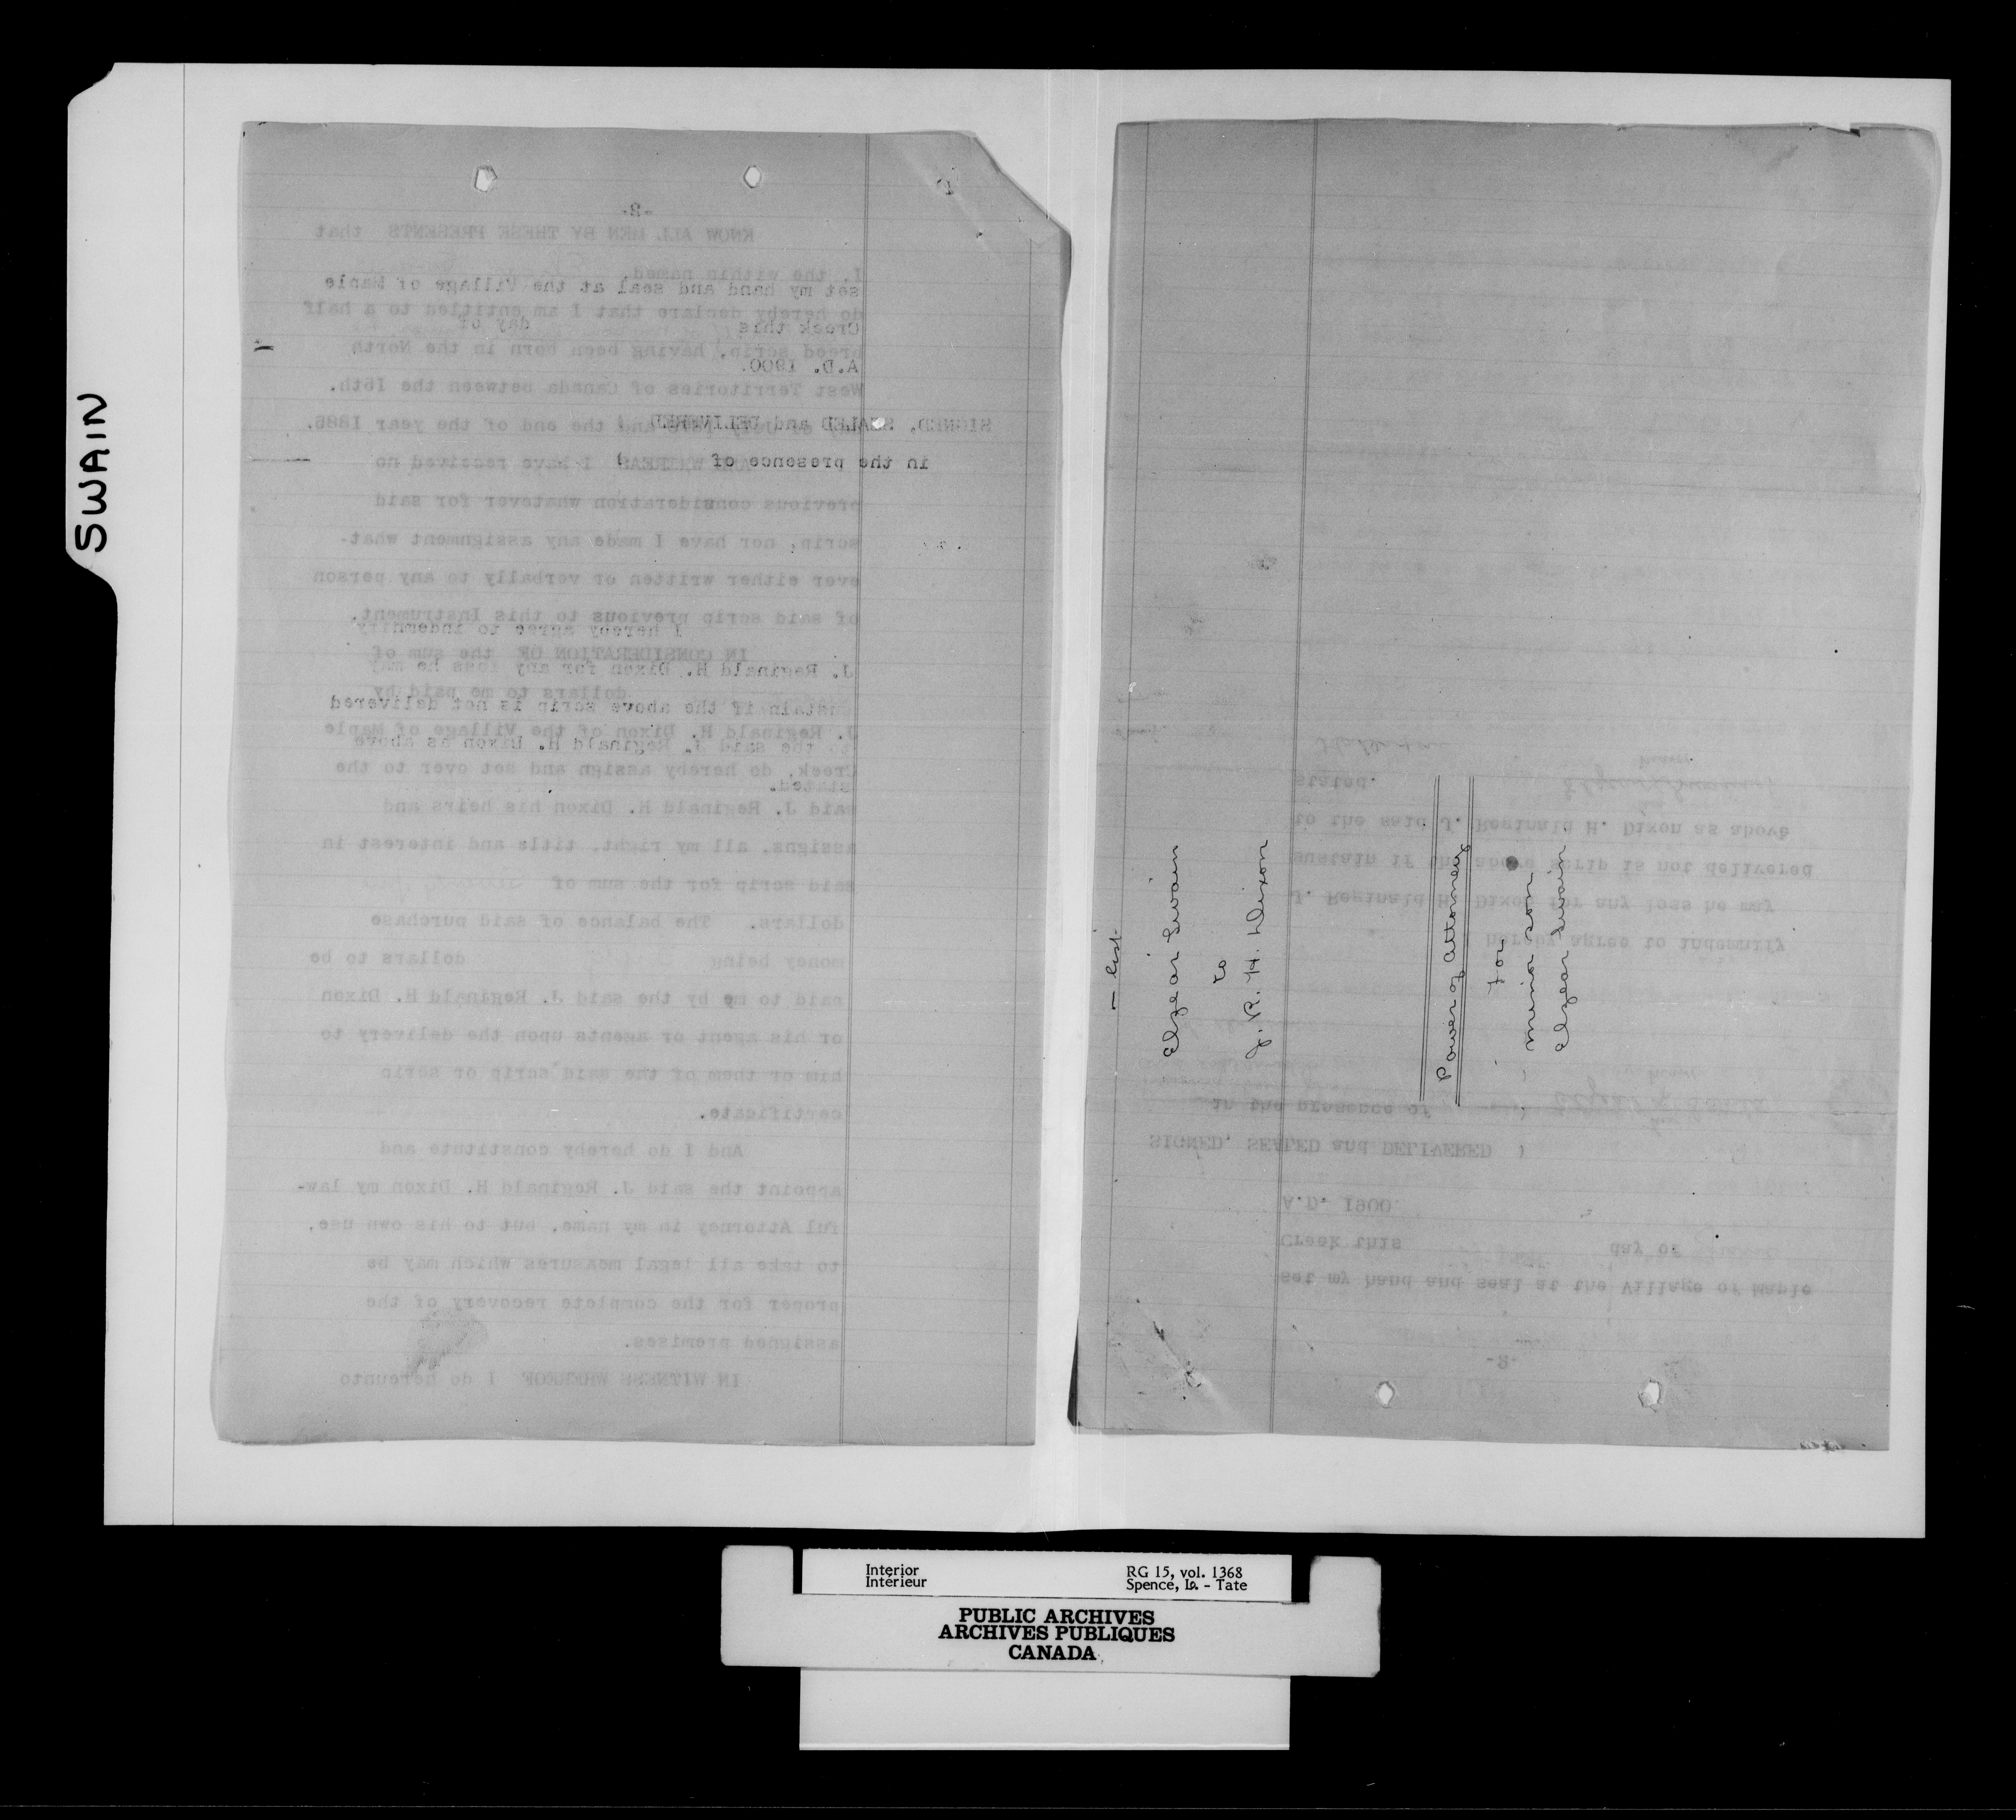 SWAIN
-2-
KNOW ALL MEN BY THESE PRESENTS that
I, the within named,
set my hand and seal at the Village of Maple
do hereby declare that I am entitled to a half
Creek this day of
breed scrip, having been born in the North
A.D. 1900.
West Territories of Canada between the 16th.
SIGNED, SEALED and DELIVERED )
of July and the end of the year 1885.
in the presence of )
AND WHEREAS I have received no
previous consideration whatever for said
scrip, nor have I made any assignment what-
ever either written or verbally to any person
of said scrip previous to this Instrument.
I hereby agree to indemnify
IN CONSIDERATION OF the sum of
J. Reginald H. Dixon for any loss he may
dollars to me paid by
sustain if the above scrip is not delivered
J. Reginald H. Dixon of the Village of Maple
to the said J. Reginald H. Dixon as above
Creek, do hereby assign and set over to the
stated.
said J. Reginald H. Dixon his heirs and
assigns, all my right, title and interest in
said scrip for the sum of
dollars. The balance of said purchase
money being dollars to be
paid to me by the said J. Reginald H. Dixon
or his agent or agents upon the delivery to
him or them of the said scrip or scrip
certificate.
And I do hereby constitute and
appoint the said J. Reginald H. Dixon my law-
ful Attorney in my name, but to his own use,
to take all legal measures which may be
proper for the complete recovery of the
assigned premises.
IN WITNESS WHEREOF I do hereunto
Elzear Swain
to
J. R. H. Dixon
Power of Attorney
for
minor son
Elzear Swain
-2-
set my hand and seal at the Village of Maple
Creek this day of
A.D. 1900.
SIGNED, SEALED and DELIVERED )
in the presence of
I hereby agree to indemnify
J. Reginald H. Dixon for any loss he may
sustain if the above scrip is not delivered
to the said J. Reginald H. Dixon as above
stated.
Interior
Intérieur
RG 15, vol. 1368
Spence, Is. - Tate
PUBLIC ARCHIVES
ARCHIVES PUBLIQUES
CANADA